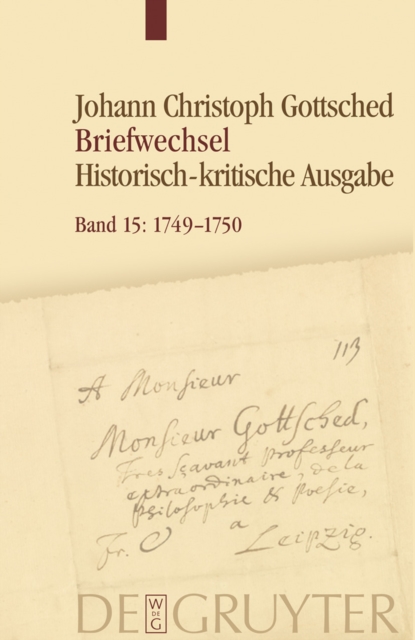 Johann Christoph Gottsched
Briefwechsel
Historisch-kritische Ausgabe
Band 15: 1749–1750
113
A Monsieur
Monsieur Gottsched,
Tres sçavant Professeur
extraordinaire, de la
Philosophie & Poesie,
Fr. a
Leipzig.
DE GRUYTER
W
DE
G